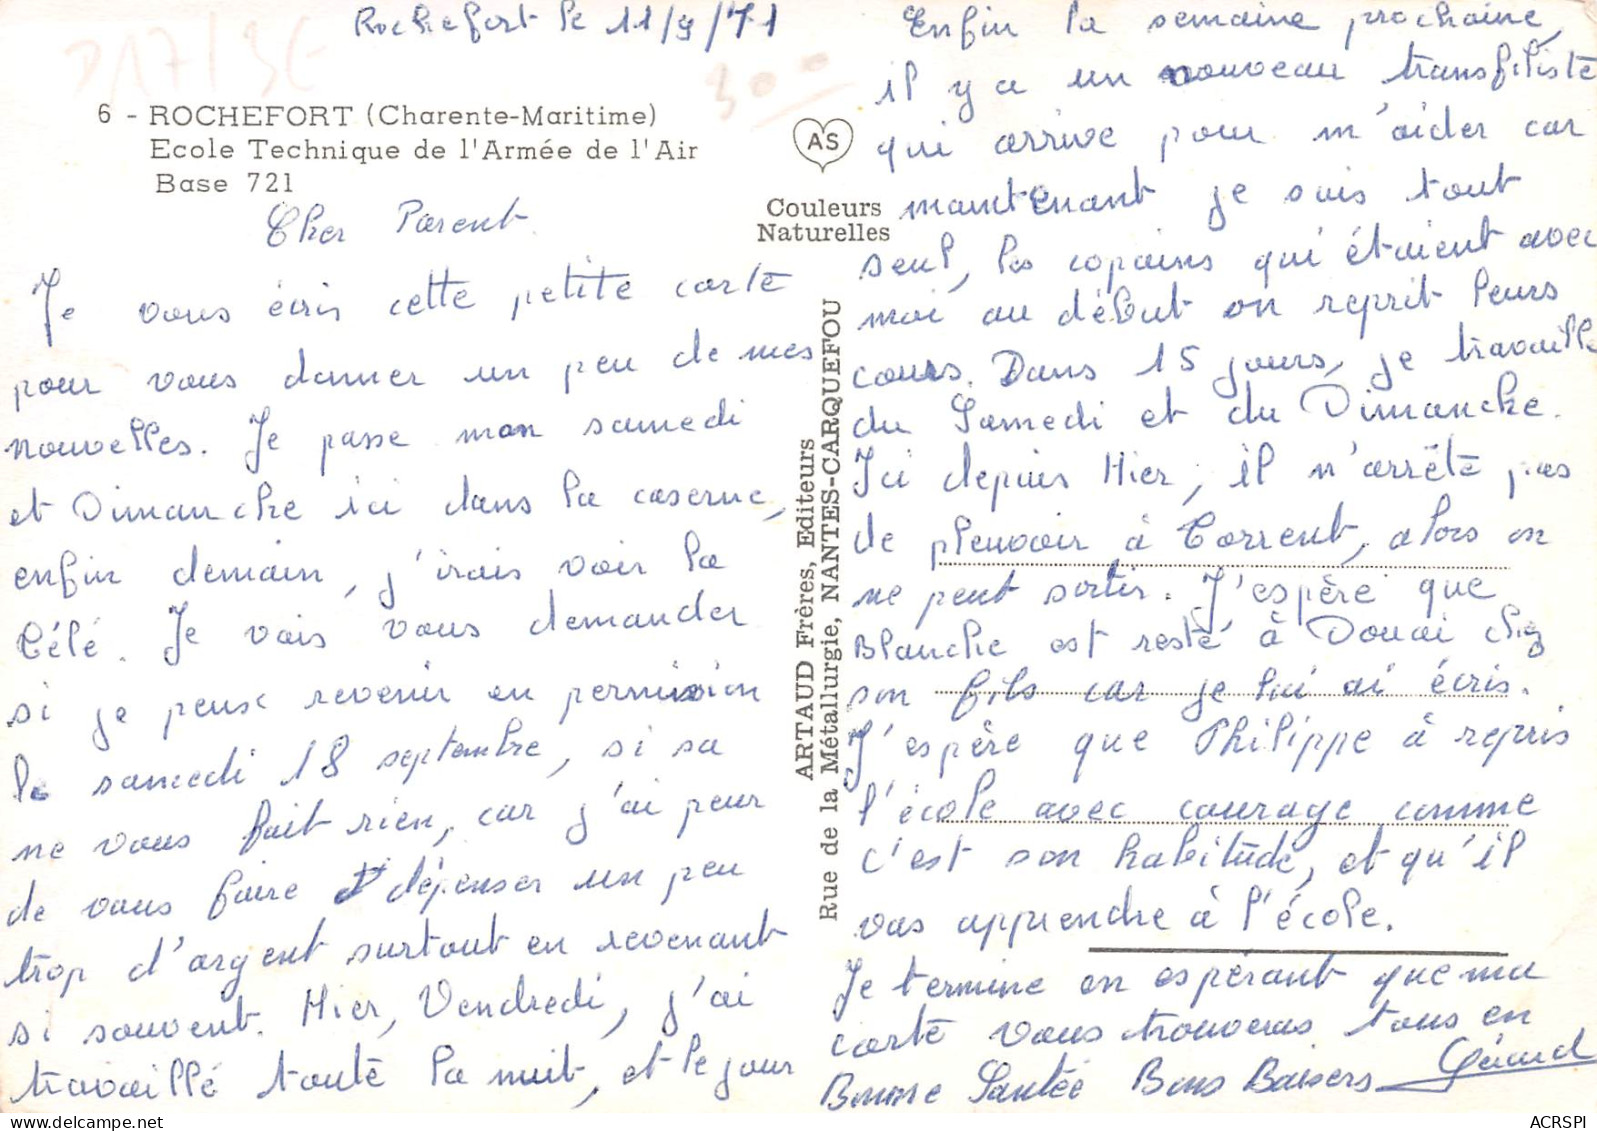 Rochefort le 11/9/71
D17/3E
300
6 - ROCHEFORT (Charente-Maritime)
Ecole Technique de l'Armée de l'Air
Base 721
AS
Couleurs
Naturelles
ARTAUD Frères, Editeurs
Rue de la Métallurgie, NANTES-CARQUEFOU
Cher Parent.
Je vous écris cette petite carte
pour vous donner un peu de mes
nouvelles. Je passe mon samedi
et Dimanche ici dans la caserne,
enfin demain, j'irais voir la
Célé. Je vais vous demander
si je peux revenir en permission
le samedi 18 septembre, si sa
ne vous fait rien, car j'ai peur
de vous faire dépenser un peu
trop d'argent surtout en revenant
si souvent. Hier, Vendredi, j'ai
travaillé toute la nuit, et le jour
Enfin la semaine prochaine,
il y a un nouveau transfiliste
qui arrive pour m'aider car
maintenant je suis tout
seul, les copains qui étaient avec
moi au début on reprit leurs
cours. Dans 15 jours, je travaille
du Samedi et du Dimanche.
Ici depuis Hier, il n'arrête pas
de pleuvoir à Torrent, alors on
ne peut sortir. J'espère que
Blanche est resté à Douai chez
son fils car je lui ai écris.
J'espère que Philippe à repris
l'école avec courage comme
c'est son habitude, et qu'il
vas apprendre à l'école.
Je termine en espérant que ma
carte vous trouveras tous en
Bonne Santée Bons Baisers Gérard
ACRSPI